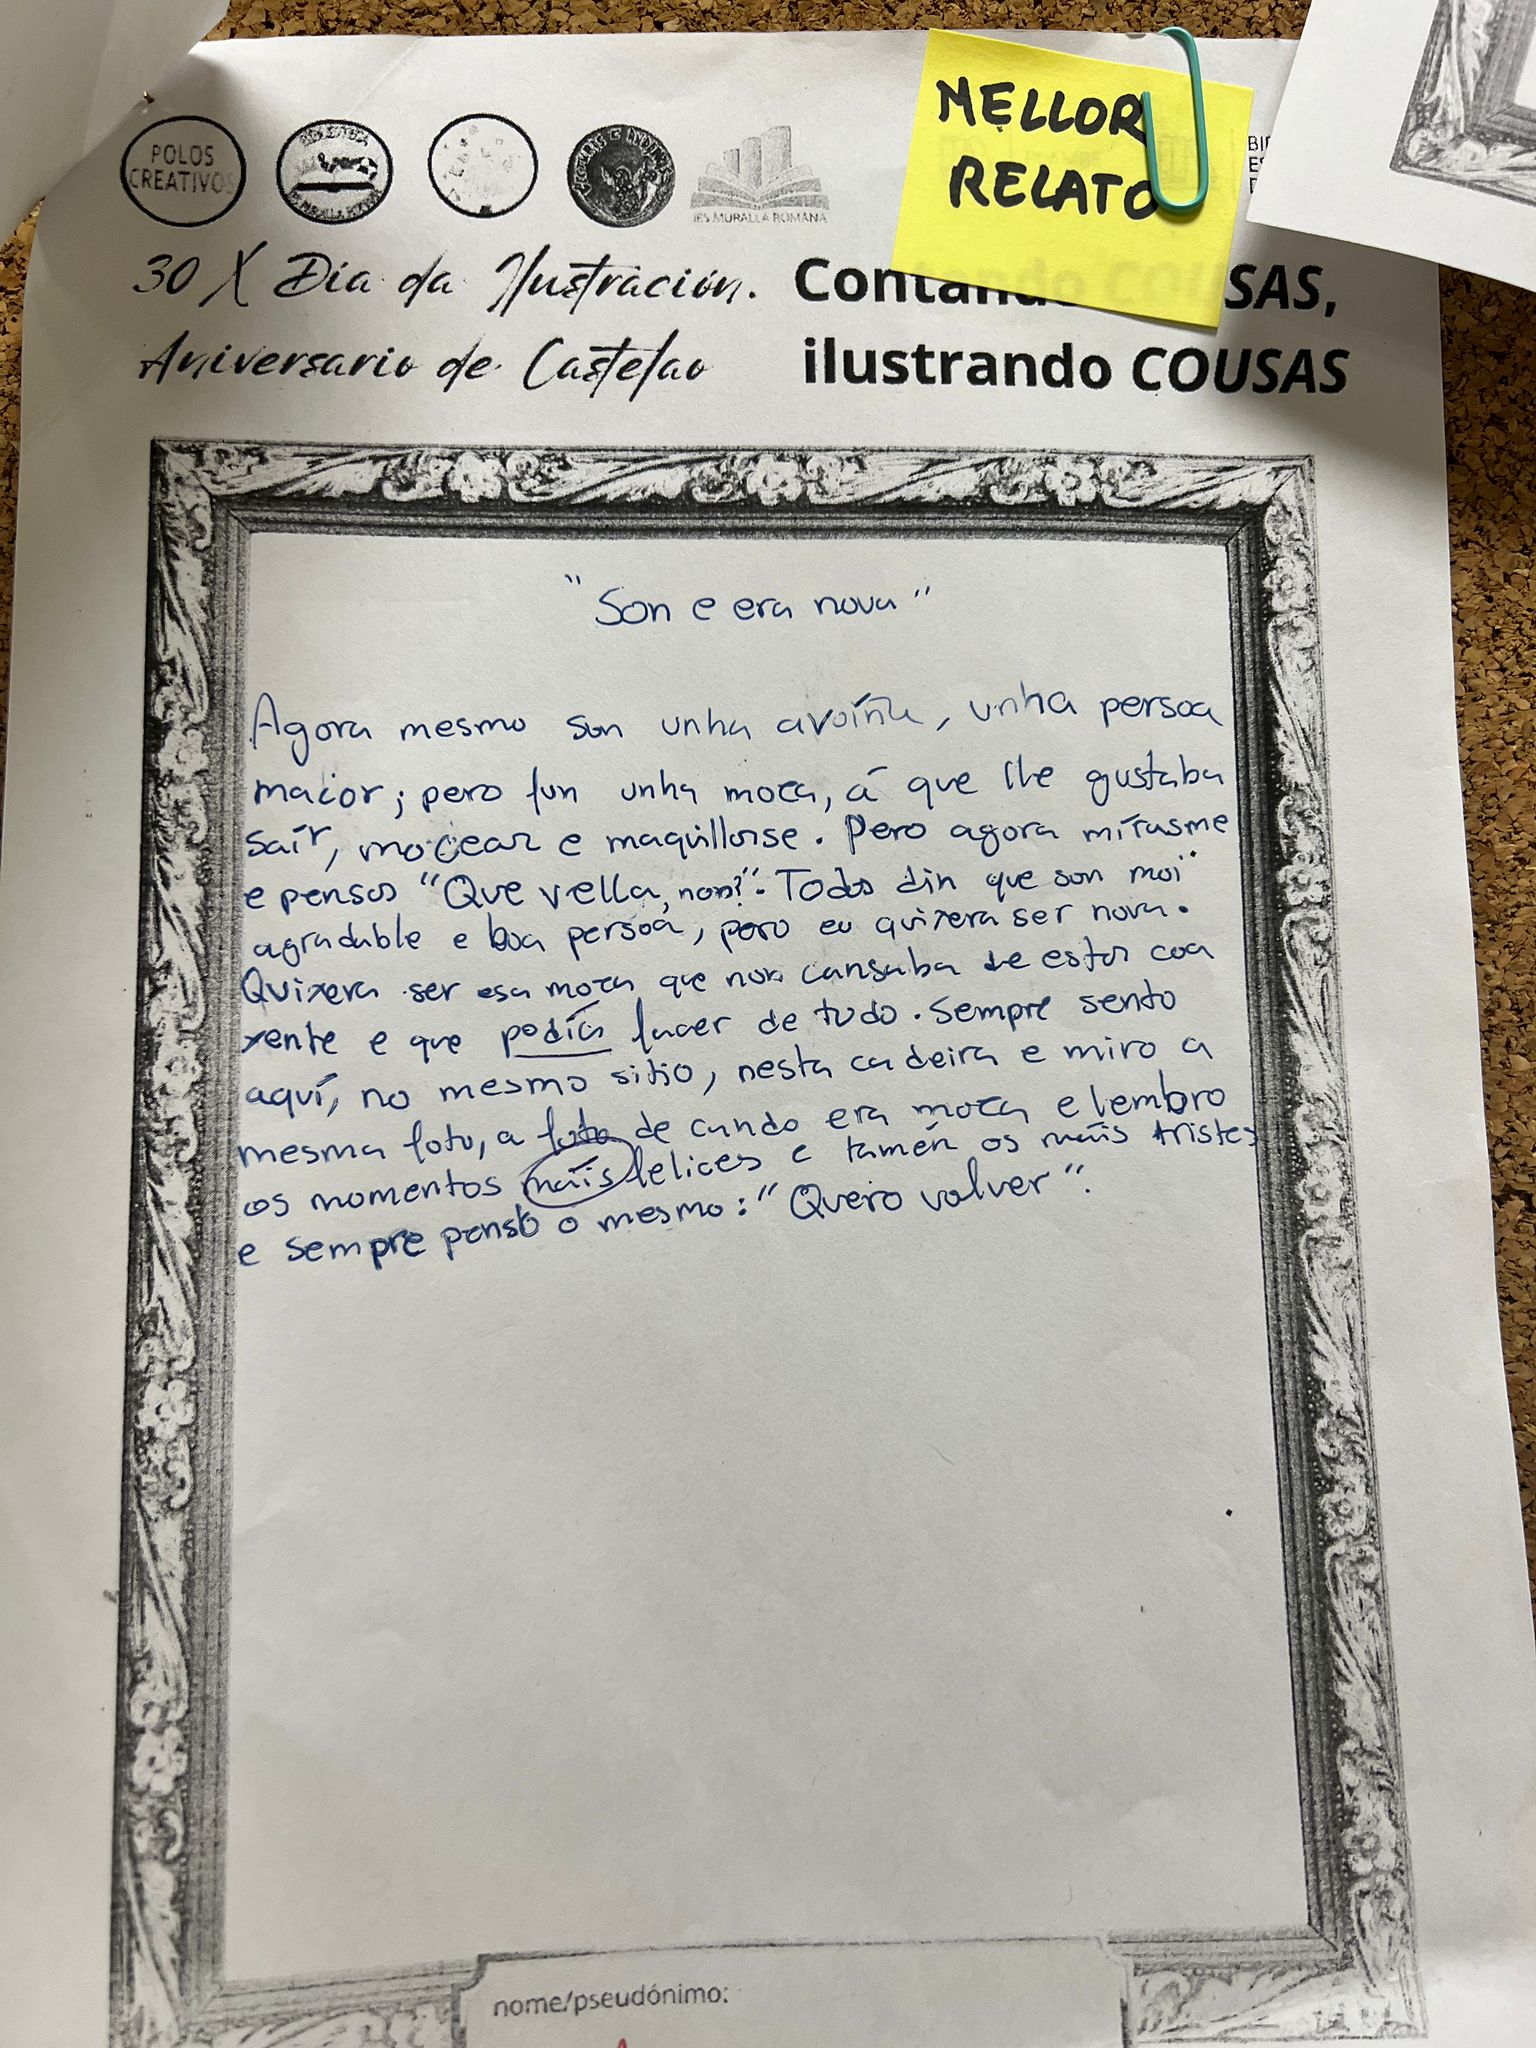 MELLOR
RELATO
POLOS
CREATIVOS
IES MURALLA ROMANA
30 X Dia da Ilustración. Contando COUSAS,
Aniversario de Castelao ilustrando COUSAS
"Son e era nova"
Agora mesmo son unha avoíña, unha persoa
maior; pero fun unha moza, á que lle gustaba
saír, mocear e maquillarse. Pero agora mírasme
e pensas "Que vella, non?". Todos din que son moi
agradable e boa persoa, pero eu quixera ser nova.
Quixera ser esa moza que non cansaba de estar coa
xente e que podía facer de todo. Sempre sento
aquí, no mesmo sitio, nesta cadeira e miro a
mesma foto, a foto de cando era moza e lembro
os momentos máis felices e tamén os máis tristes
e sempre penso o mesmo: "Quero volver".
nome/pseudónimo: